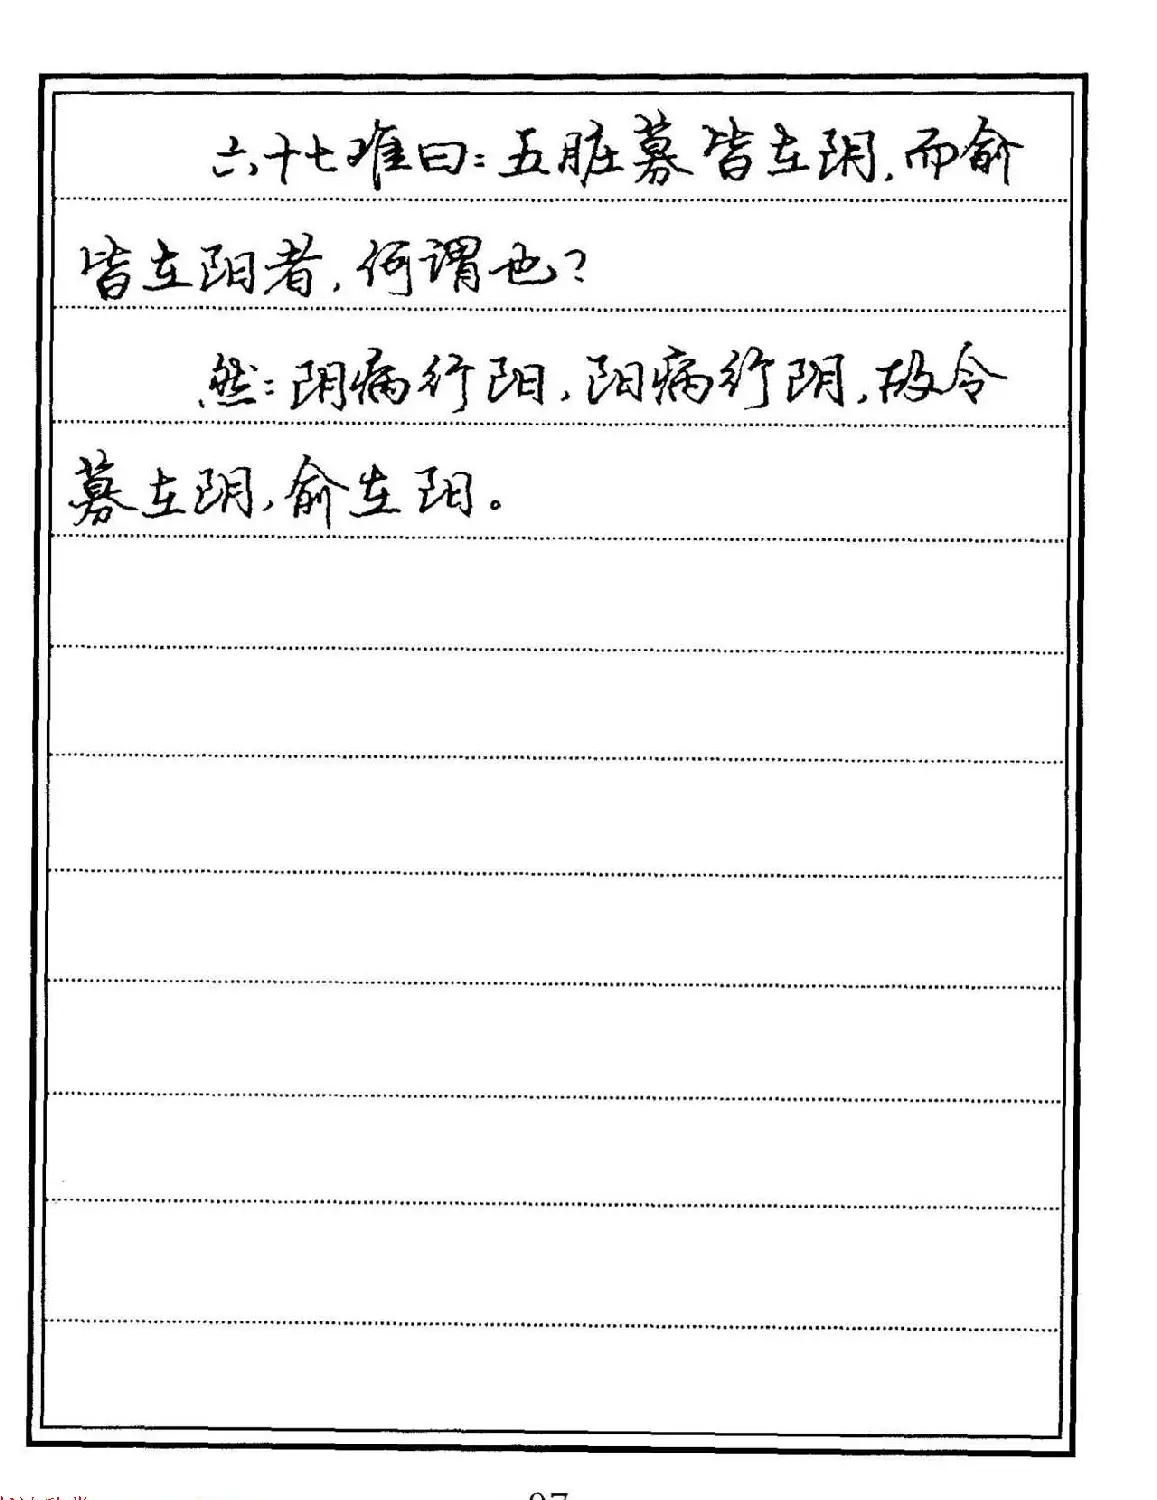 六十七难曰：五脏募皆在阴，而俞
皆在阳者，何谓也？
然：阴病行阳，阳病行阴，故令
募在阴，俞在阳。
97